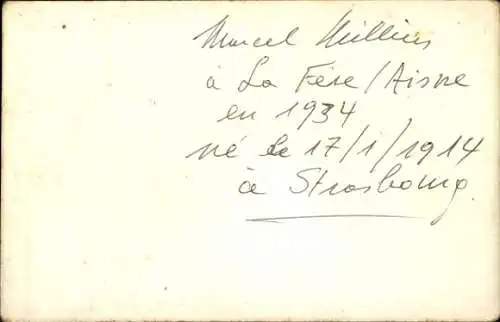 Marcel
à La Fère/Aisne
en 1934
né le 17/1/1914
à Strasbourg